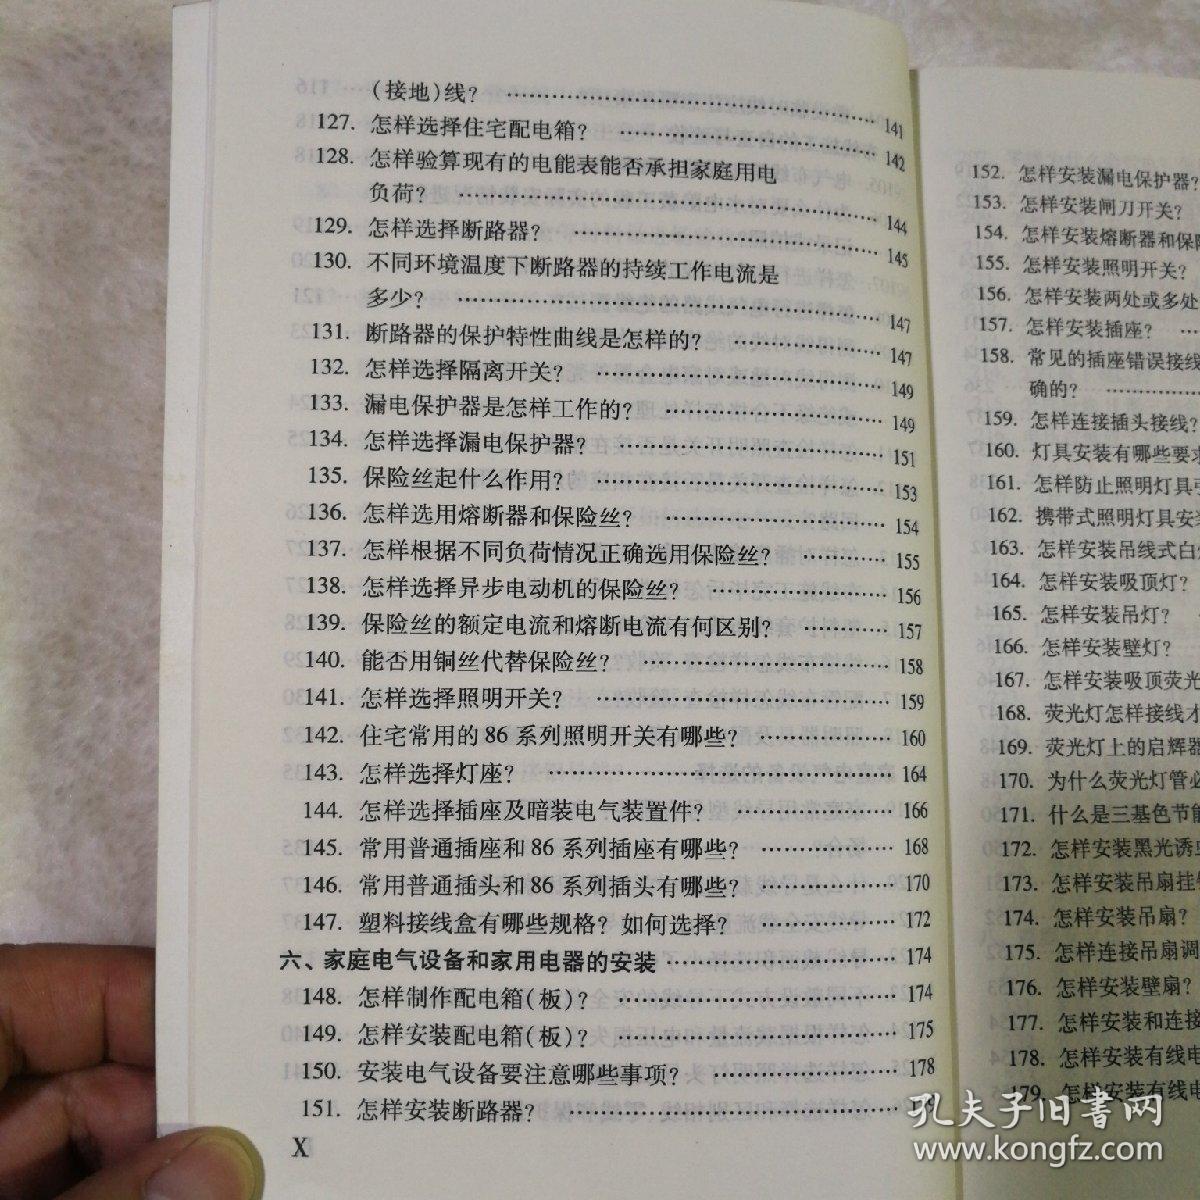 (接地)线? ……………………………… 141
127. 怎样选择住宅配电箱? ……………………… 142
128. 怎样验算现有的电能表能否承担家庭用电
负荷? ……………………………… 144
129. 怎样选择断路器? ……………………… 145
130. 不同环境温度下断路器的持续工作电流是
多少? ……………………………… 147
131. 断路器的保护特性曲线是怎样的? ………… 147
132. 怎样选择隔离开关? ……………………… 149
133. 漏电保护器是怎样工作的? ……………… 149
134. 怎样选择漏电保护器? ………………… 151
135. 保险丝起什么作用? …………………… 153
136. 怎样选用熔断器和保险丝? …………… 154
137. 怎样根据不同负荷情况正确选用保险丝? …… 155
138. 怎样选择异步电动机的保险丝? ………… 156
139. 保险丝的额定电流和熔断电流有何区别? …… 157
140. 能否用铜丝代替保险丝? ……………… 158
141. 怎样选择照明开关? …………………… 159
142. 住宅常用的 86 系列照明开关有哪些? ……… 160
143. 怎样选择灯座? ……………………… 164
144. 怎样选择插座及暗装电气装置件? ………… 166
145. 常用普通插座和 86 系列插座有哪些? ……… 168
146. 常用普通插头和 86 系列插头有哪些? ……… 170
147. 塑料接线盒有哪些规格? 如何选择? ……… 172
六、家庭电气设备和家用电器的安装 …………… 174
148. 怎样制作配电箱(板)? ………………… 174
149. 怎样安装配电箱(板)? ………………… 175
150. 安装电气设备要注意哪些事项? ………… 178
151. 怎样安装断路器? ……………………
X
152. 怎样安装漏电保护器?
153. 怎样安装闸刀开关?
154. 怎样安装熔断器和保险
155. 怎样安装照明开关?
156. 怎样安装两处或多处
157. 怎样安装插座? …
158. 常见的插座错误接线
确的? ……………
159. 怎样连接插头接线?
160. 灯具安装有哪些要求
161. 怎样防止照明灯具引
162. 携带式照明灯具安装
163. 怎样安装吊线式白炽
164. 怎样安装吸顶灯?
165. 怎样安装吊灯?
166. 怎样安装壁灯?
167. 怎样安装吸顶荧光
168. 荧光灯怎样接线才
169. 荧光灯上的启辉器
170. 为什么荧光灯管必
171. 什么是三基色节能
172. 怎样安装黑光诱虫
173. 怎样安装吊扇挂钩
174. 怎样安装吊扇?
175. 怎样连接吊扇调
176. 怎样安装壁扇?
177. 怎样安装和连接
178. 怎样安装有线电
179. 怎样安装有线电
孔夫子旧书网
www.kongfz.com